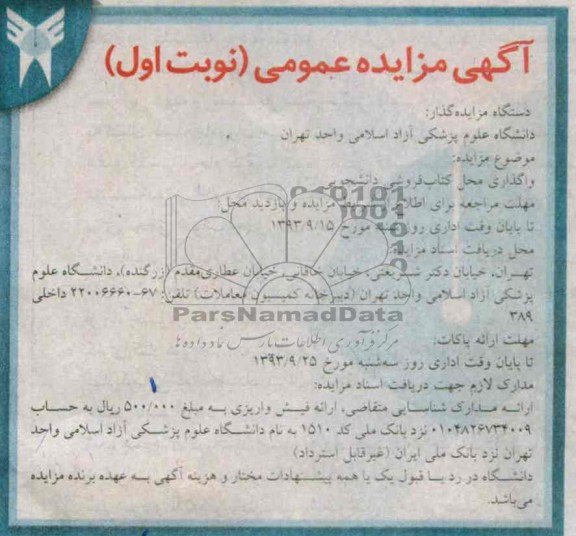 آگهی مزایده عمومی (نوبت اول)
دستگاه مزایده‌گذار:
دانشگاه علوم پزشکی آزاد اسلامی واحد تهران
موضوع مزایده:
واگذاری محل کتاب‌فروشی دانشجویی
مهلت مراجعه برای اطلاع از شرایط مزایده و بازدید محل:
تا پایان وقت اداری روز شنبه مورخ ۱۳۹۳/۹/۱۵
محل دریافت اسناد مزایده:
تهران، خیابان دکتر شریعتی، خیابان خاقانی، خیابان عطاری‌مقدم (زرگنده)، دانشگاه علوم
پزشکی آزاد اسلامی واحد تهران (دبیرخانه کمیسیون معاملات) تلفن: ۶۷-۲۲۰۰۶۶۶۰ داخلی
۳۸۹
ParsNamadData
مهلت ارائه پاکات:
مرکز فرآوری اطلاعات پارس نماد داده ها
تا پایان وقت اداری روز سه‌شنبه مورخ ۱۳۹۳/۹/۲۵
مدارک لازم جهت دریافت اسناد مزایده:
ارائه مدارک شناسایی متقاضی، ارائه فیش واریزی به مبلغ ۵۰۰/۰۰۰ ریال به حساب
۰۱۰۴۸۲۶۷۳۴۰۰۹ نزد بانک ملی کد ۱۵۱۰ به نام دانشگاه علوم پزشکی آزاد اسلامی واحد
تهران نزد بانک ملی ایران (غیرقابل استرداد)
دانشگاه در رد یا قبول یک یا همه پیشنهادات مختار و هزینه آگهی به عهده برنده مزایده
می‌باشد.